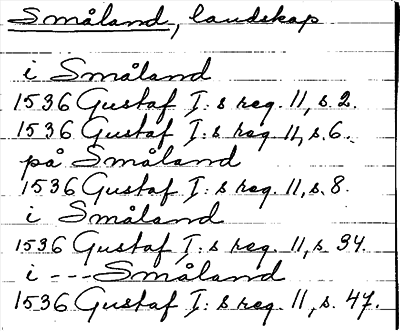 Småland, landskap
i Småland
1536 Gustaf I:s reg. 11, s. 2.
1536 Gustaf I:s reg. 11, s. 6.
på Småland
1536 Gustaf I:s reg. 11, s. 8.
i Småland
1536 Gustaf I:s reg. 11, s. 34.
i --- Småland
1536 Gustaf I:s reg. 11, s. 47.